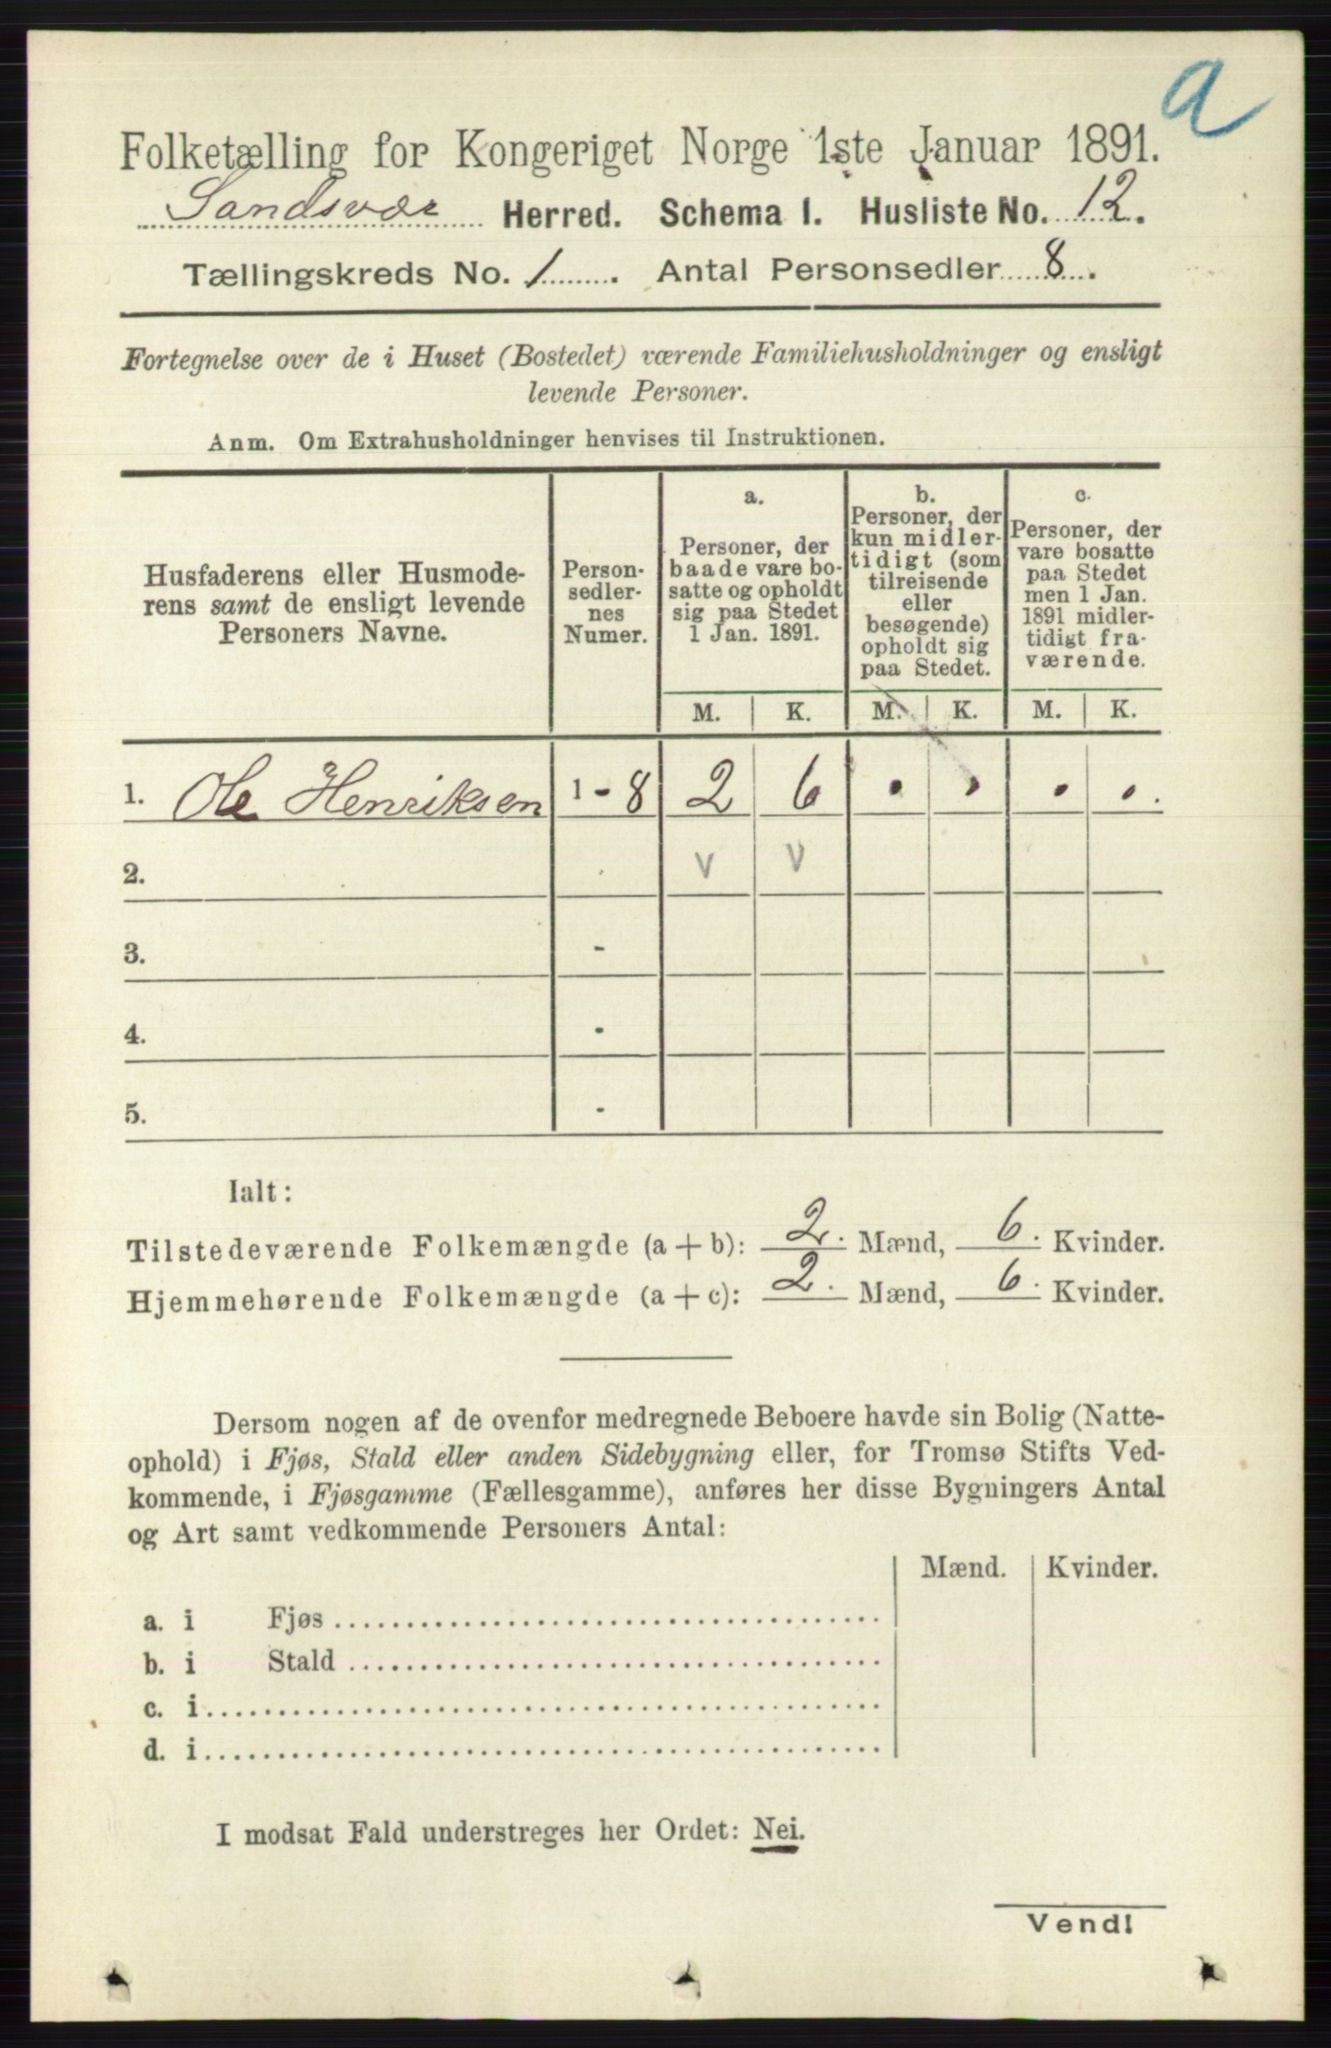 a
Folketælling for Kongeriget Norge 1ste Januar 1891.
Sandsvær Herred. Schema 1. Husliste No. 12.
Tællingskreds No. 1. Antal Personsedler 8.
Fortegnelse over de i Huset (Bostedet) værende Familiehusholdninger og ensligt
levende Personer.
Anm. Om Extrahusholdninger henvises til Instruktionen.
Husfaderens eller Husmode-
rens samt de ensligt levende
Personers Navne.
Person-
sedler-
nes
Numer.
a.
Personer, der
baade vare bo-
satte og opholdt
sig paa Stedet
1 Jan. 1891.
b.
Personer, der
kun midler-
tidigt (som
tilreisende
eller
besøgende)
opholdt sig
paa Stedet.
c.
Personer, der
vare bosatte
paa Stedet
men 1 Jan.
1891 midler-
tidigt fra-
værende.
M. K. M. K. M. K.
1. Ole Henriksen 1 - 8 2 6 . . . .
2. v v
3. -
4. -
5. -
Ialt:
Tilstedeværende Folkemængde (a + b): 2. Mænd, 6. Kvinder.
Hjemmehørende Folkemængde (a + c): 2. Mænd, 6. Kvinder.
Dersom nogen af de ovenfor medregnede Beboere havde sin Bolig (Natte-
ophold) i Fjøs, Stald eller anden Sidebygning eller, for Tromsø Stifts Ved-
kommende, i Fjøsgamme (Fællesgamme), anføres her disse Bygningers Antal
og Art samt vedkommende Personers Antal:
Mænd. Kvinder.
a. i Fjøs
b. i Stald
c. i
d. i
I modsat Fald understreges her Ordet: Nei.
Vend!